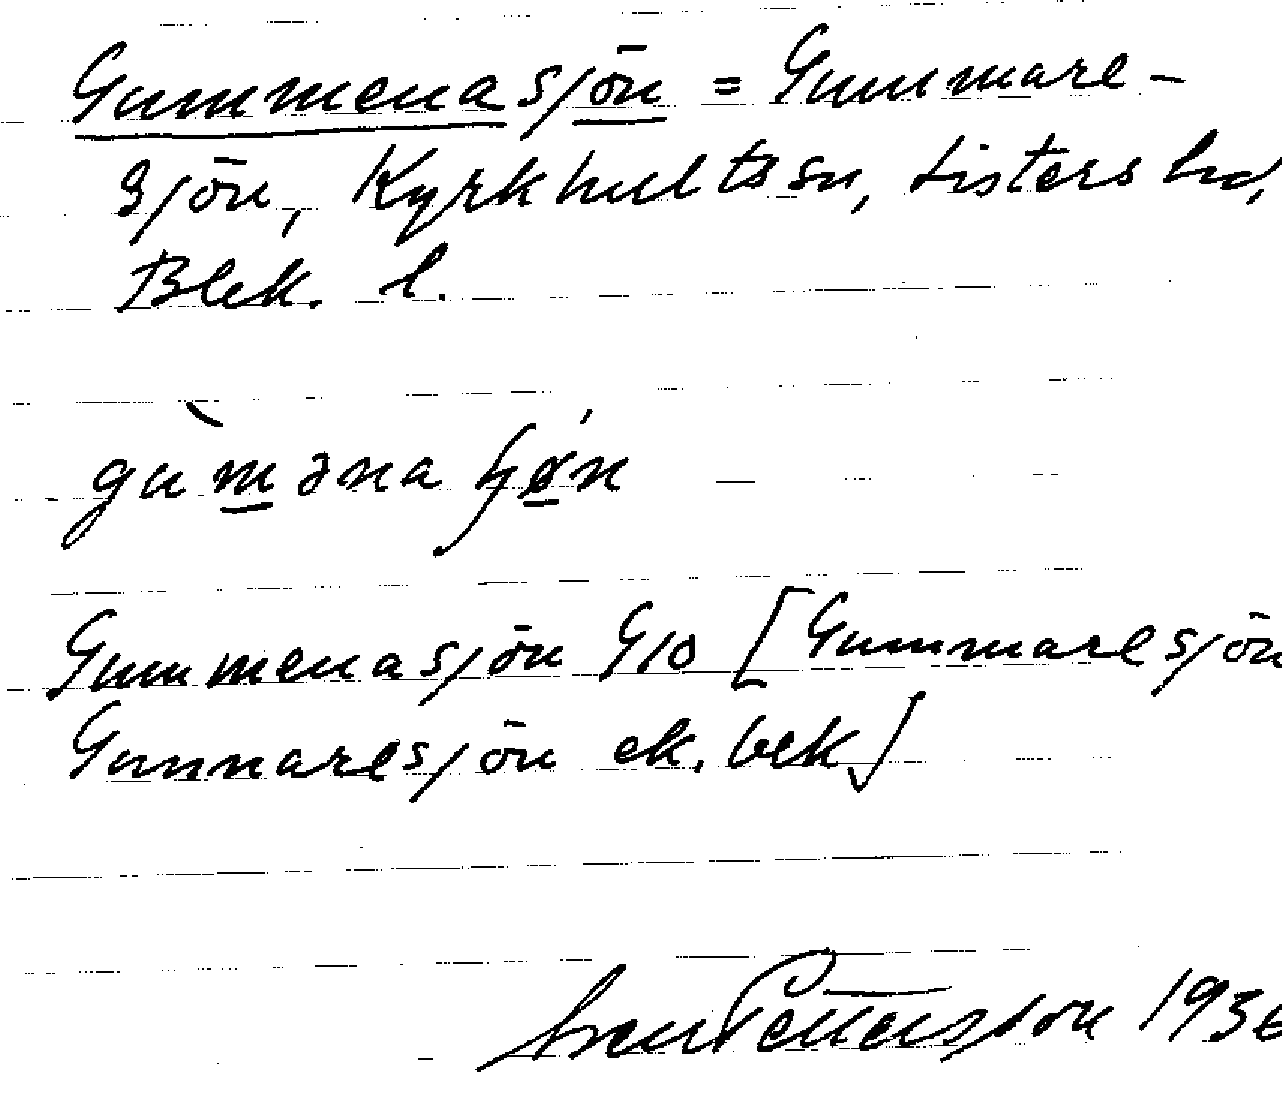 Gummenasjön = Gummare-
sjön, Kyrkhultssn, Listers hd,
Blek. l.
gùməna ʃǿn
Gummenasjön G10 [Gummaresjön
Gunnaresjön ek. bek]
Sven Pettersson 1936